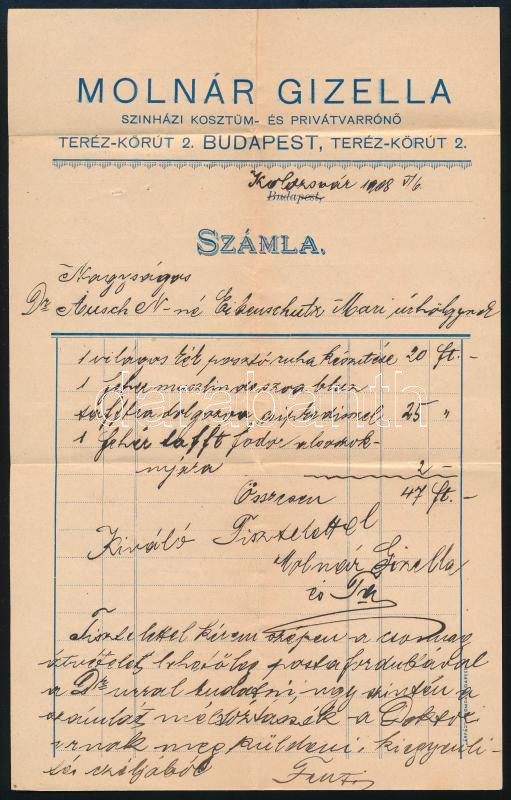 MOLNÁR GIZELLA
SZINHÁZI KOSZTÜM- ÉS PRIVÁTVARRÓNŐ
TERÉZ-KÖRÚT 2. BUDAPEST, TERÉZ-KÖRÚT 2.
Kolozsvár 1908 V/6.
Budapest,
SZÁMLA.
Nagyságos
Dr Ausch N-né Eibenschutz Mari úrhölgynek
1 világos kék posztó ruha készitése 20 ft.–
1 fehér muszlin de szoa bluz
taftba dolgozva csipkedisszel 25 "
1 fehér tafft fodor alsószok-
nyára 2 –
Összesen 47 ft.–
Kiváló Tisztelettel
Molnár Gizella
és Tsa
Tisztelettel kérem szépen a csomag
átvételét lehetőleg posta fordultával
a Dr urral tudatni, ugy szintén a
számlát méltóztassék a Doktor
urnak megküldeni, kiegyenli-
tés céljából
darabanth